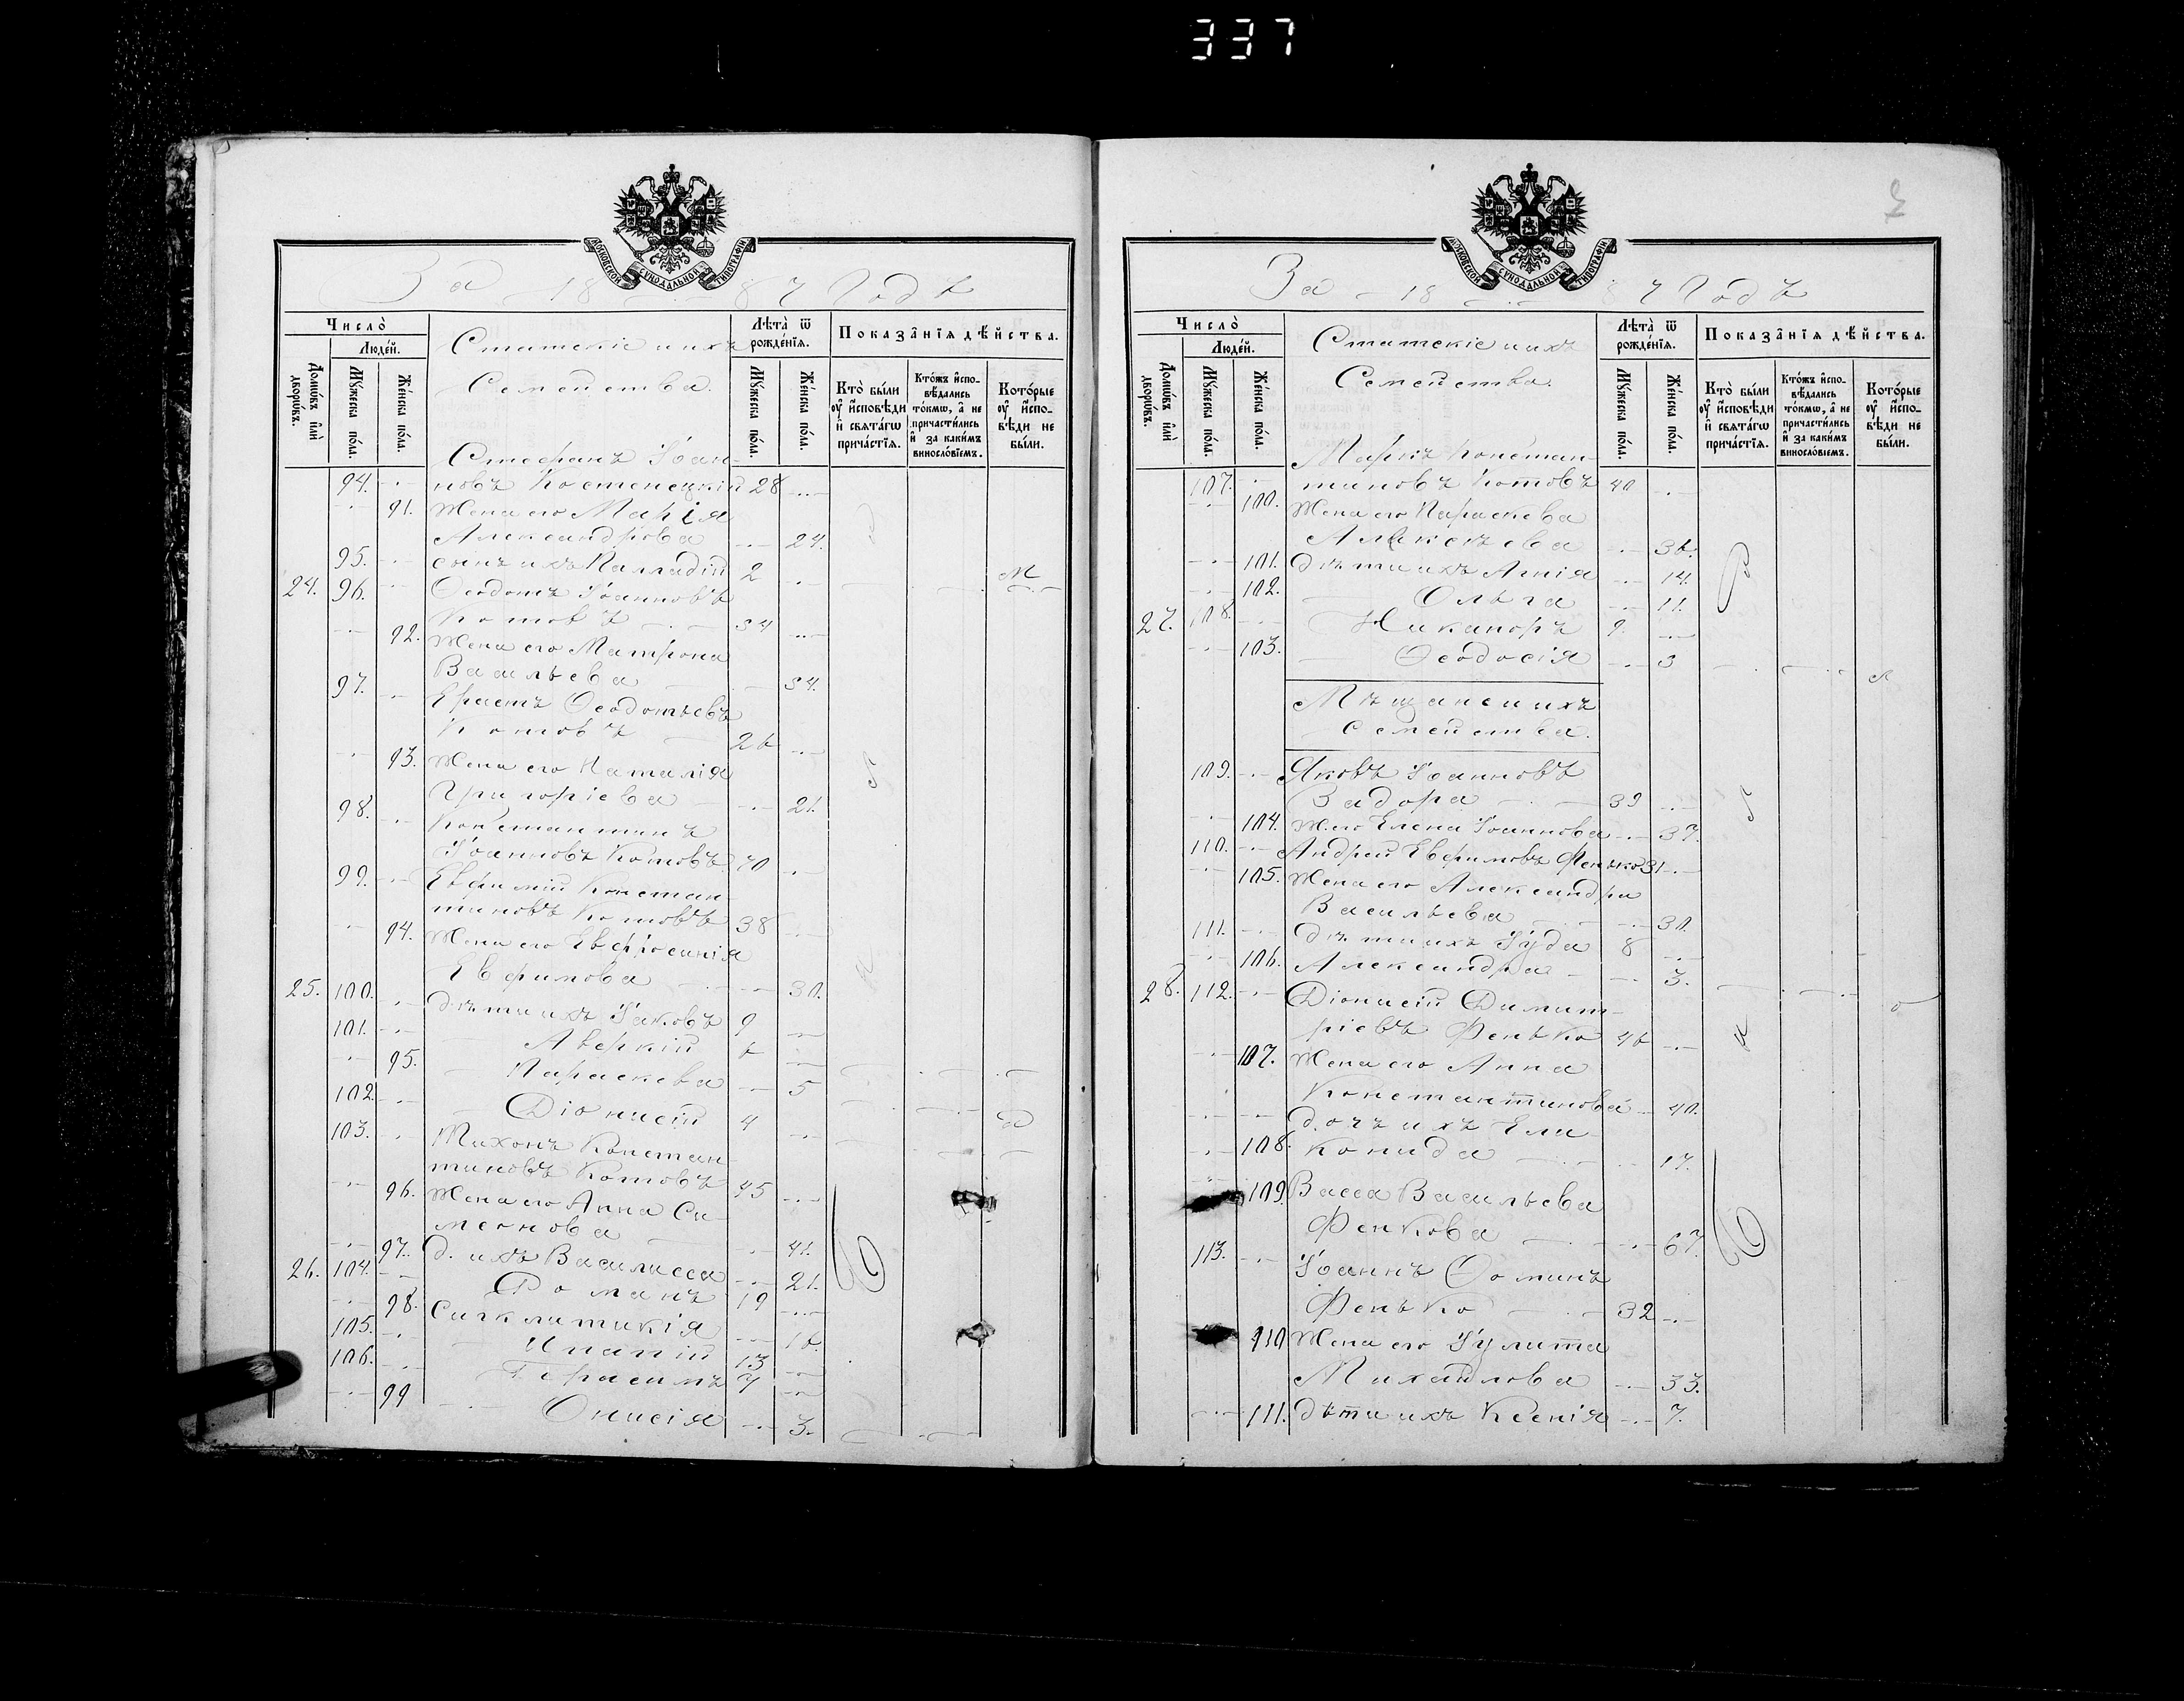 337
МОСКОВСКОЙ СУНОДАЛЬНОЙ ТИПОГРАФІИ
За 1887 Годъ
Число̀
Людей.
Домѡвъ и҆лѝ дворѡвъ.
Мꙋжеска пола.
Женска пола.
Статскіе и ихъ
Семейства.
Лѣта̀ ѿ рожденїѧ.
Мꙋжеска пола.
Женска пола.
Показанїѧ дѣйства.
Кто̀ были оу҆ и҆сповѣди и҆ свѧтагѡ причастїѧ.
Ктожъ и҆сповѣдались токмѡ, а҆ не причастились и҆ за какимъ винословїемъ.
Которые оу҆ и҆сповѣди не были.
Стефанъ Іоан-
94. новъ Костенецкій 28
91. Жена его Марія
Александрова 24.
95. сынъ ихъ Палладій 2
24. 96. Ѳеодотъ Іоанновъ
Котовъ 54
92. Жена его Матрона
Васильева 54.
97. Ерастъ Ѳеодотьевъ
Котовъ 26
93. Жена его Наталія
Григоріева 21.
98. Константинъ
Іоанновъ Котовъ 70
99. Евфимій Констан-
тиновъ Котовъ 38
94. Жена его Евфросинія
Евфимова 30.
25. 100. дѣти ихъ Іаковъ 9
101. Аверкій 6
95. Параскева 5
102. Діонисій 4
103. Тихонъ Констан-
тиновъ Котовъ 45
96. Жена его Анна Си-
меонова 41.
97. д. ихъ Василисса 21.
26. 104. Романъ 19
98. Сигклитикія 16.
105. Ипатій 13
106. Герасимъ 7
99 Онисія 3.
За 1887 Годъ
Число̀
Людей.
Домѡвъ и҆лѝ дворѡвъ.
Мꙋжеска пола.
Женска пола.
Статскіе и ихъ
Семейства.
Лѣта̀ ѿ рожденїѧ.
Мꙋжеска пола.
Женска пола.
Показанїѧ дѣйства.
Кто̀ были оу҆ и҆сповѣди и҆ свѧтагѡ причастїѧ.
Ктожъ и҆сповѣдались токмѡ, а҆ не причастились и҆ за какимъ винословїемъ.
Которые оу҆ и҆сповѣди не были.
Маркъ Констан-
107. тиновъ Котовъ 40
100. Жена его Параскева
Алексѣева 36.
101. дѣти ихъ Агнія 14.
102. Ольга 11.
27. 108. Никаноръ 9.
103. Ѳеодосія 3
Мѣщане и ихъ
семейства.
109. Яковъ Іоанновъ
Задора 39
104. Ж. его Елена Іоаннова 37.
110. Андрей Евфимовъ Фенько 31
105. Жена его Александра
Васильева 30.
111. дѣти ихъ Іуда 8
106. Александра 3.
28. 112. Діонисій Димит-
ріевъ Фенько 46
107. Жена его Анна
Константинова 40.
дочь ихъ Ели-
108. конида 17.
109. Васса Васильева
Фенкова 67.
113. Іоаннъ Ѳоминъ
Фенько 32
110 Жена его Іулитта
Михайлова 33.
111. дѣти ихъ Ксенія 7.